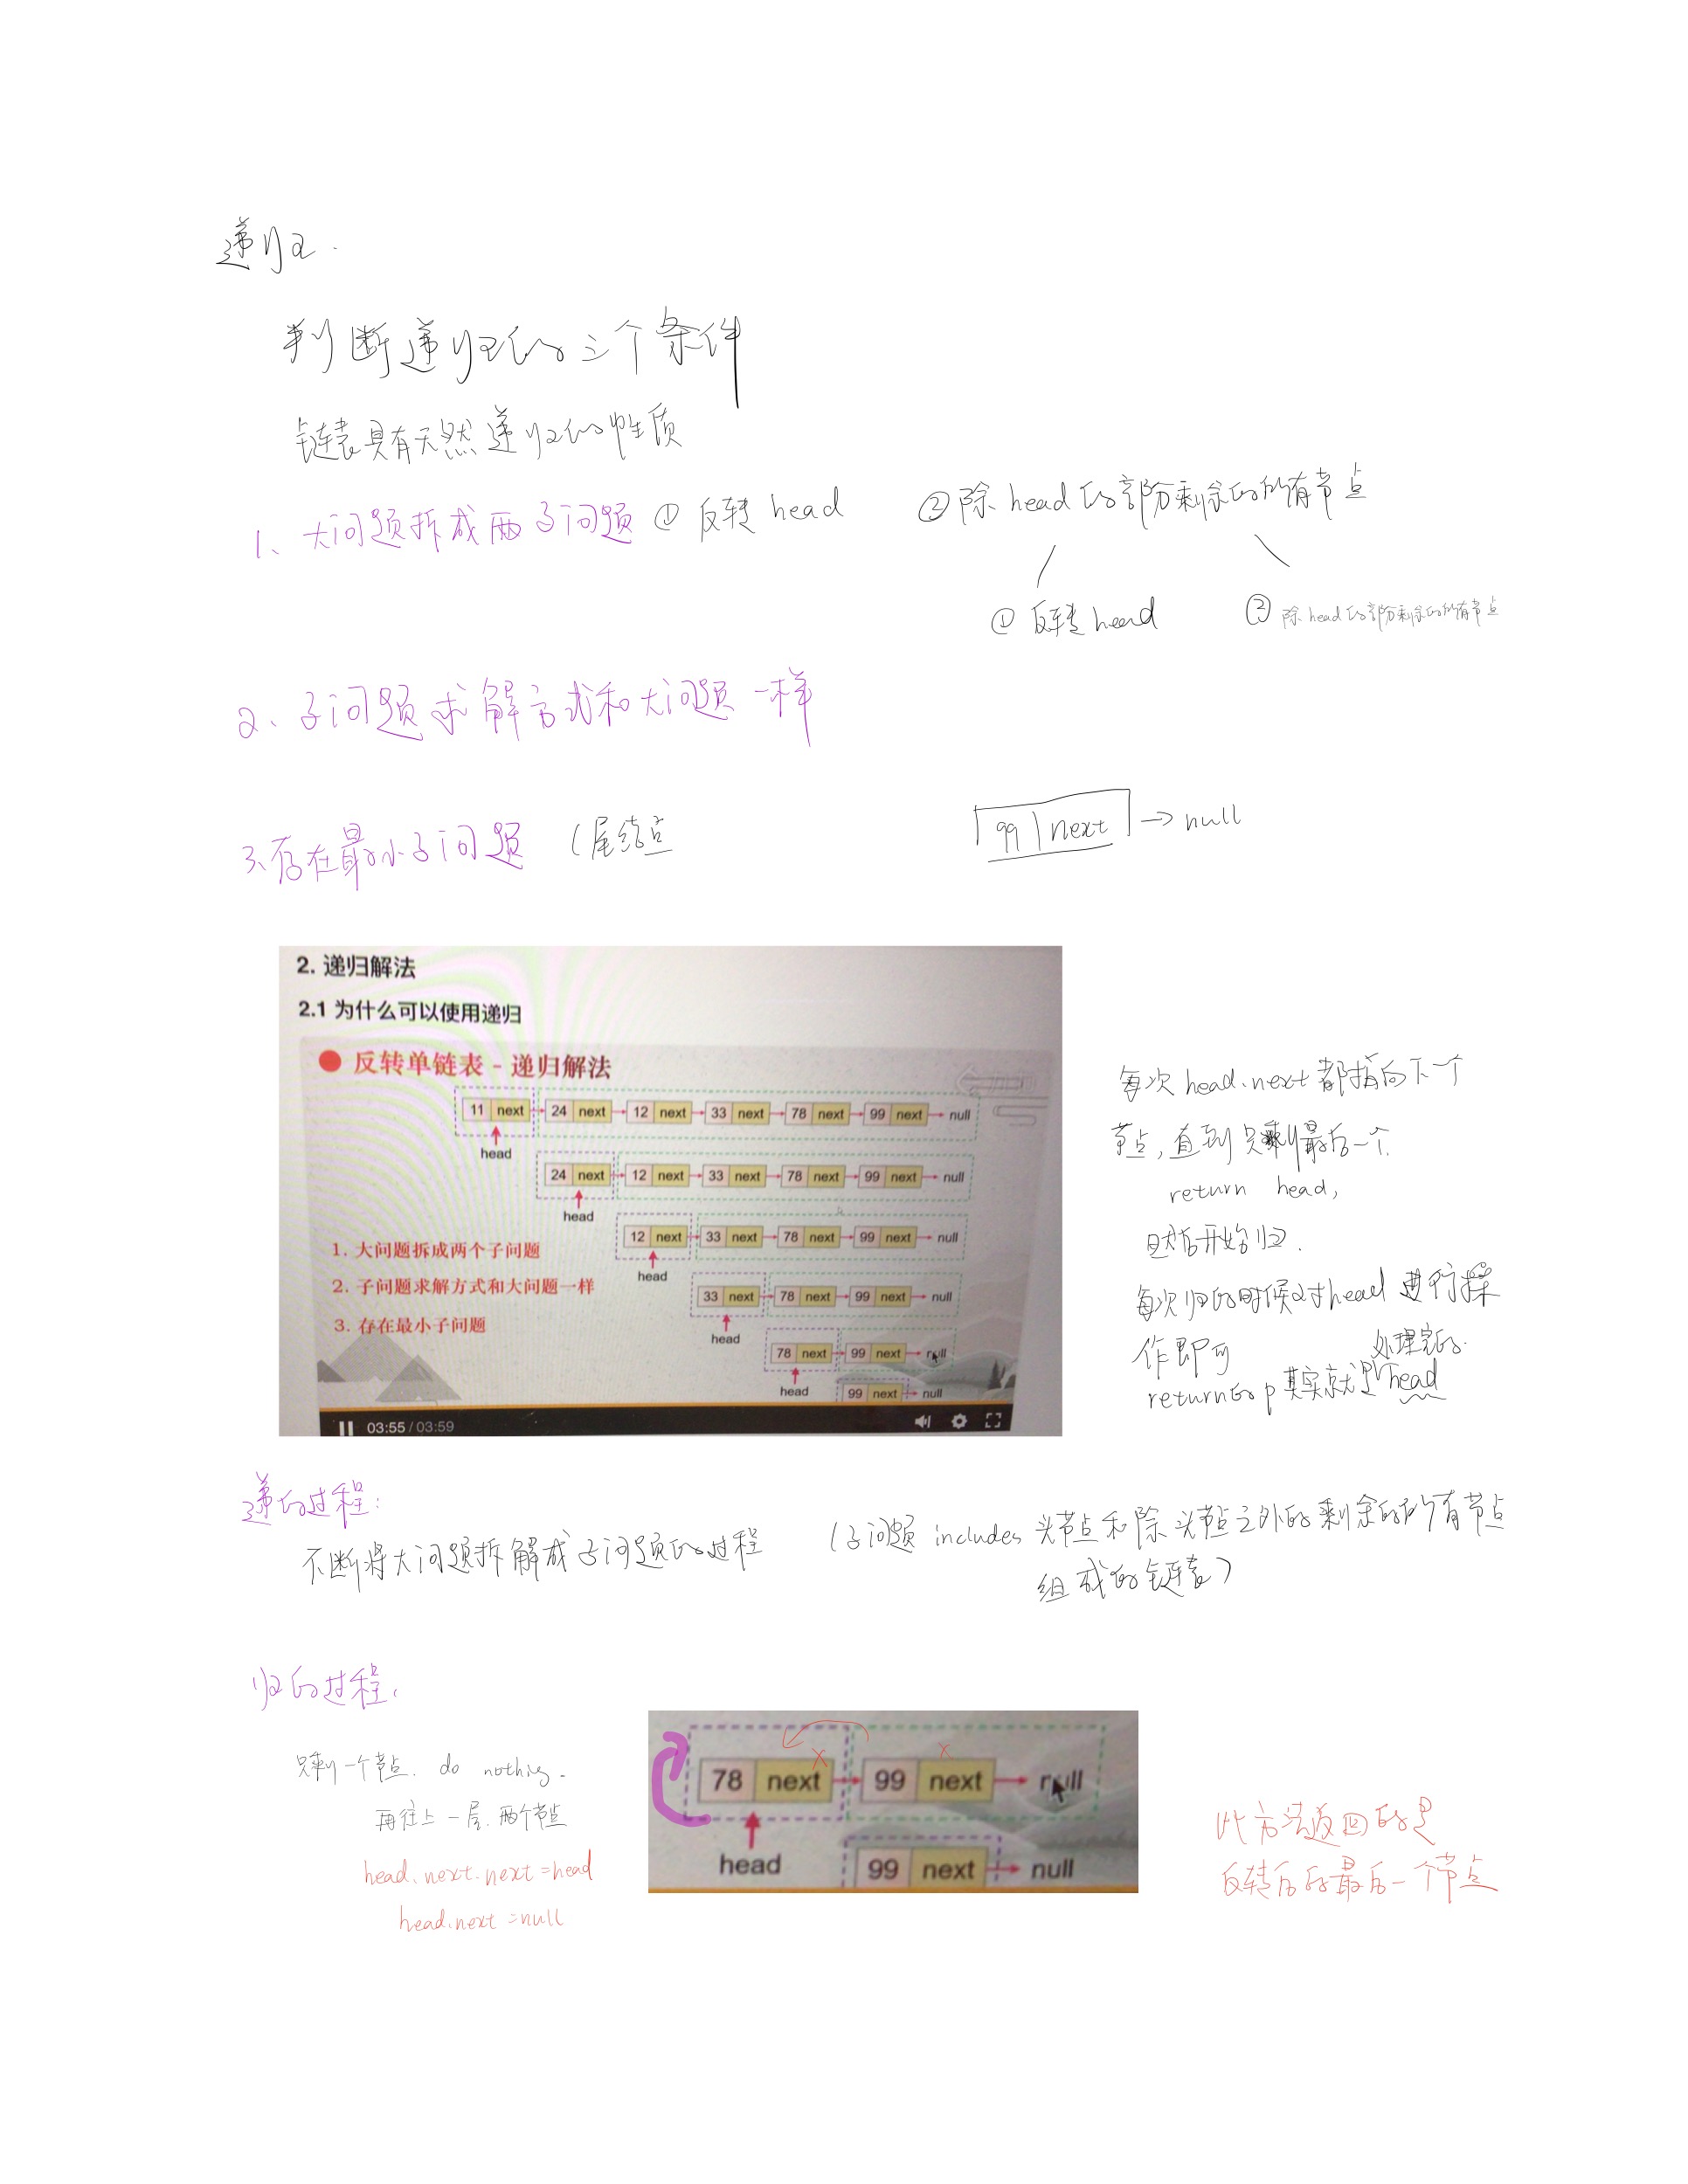 递归.
判断递归的三个条件
链表具有天然递归的性质
1、大问题拆成两子问题 ① 反转 head ② 除 head 的部分剩余的所有节点
① 反转 head ② 除 head 的部分剩余的所有节点
2、子问题求解方式和大问题一样
3、存在最小子问题 (尾结点 99 next → null
2. 递归解法
2.1 为什么可以使用递归
反转单链表 - 递归解法
11 next 24 next 12 next 33 next 78 next 99 next null
head
24 next 12 next 33 next 78 next 99 next null
head
12 next 33 next 78 next 99 next null
head
33 next 78 next 99 next null
head
78 next 99 next null
head
99 next null
1. 大问题拆成两个子问题
2. 子问题求解方式和大问题一样
3. 存在最小子问题
03:55 / 03:59
每次 head.next 都指向下一个
节点, 直到只剩最后一个.
return head,
然后开始归.
每次归的时候对 head 进行操
作即可
处理完的.
return的 p 其实就是 head
递的过程:
不断将大问题拆解成子问题的过程 (子问题 includes 头节点和除头节点之外的剩余的所有节点
组成的链表)
归的过程,
只剩一个节点. do nothing.
再往上一层. 两个节点
head.next.next = head
head.next = null
78 next 99 next null
head
99 next null
此方法返回的是
反转后的最后一个节点